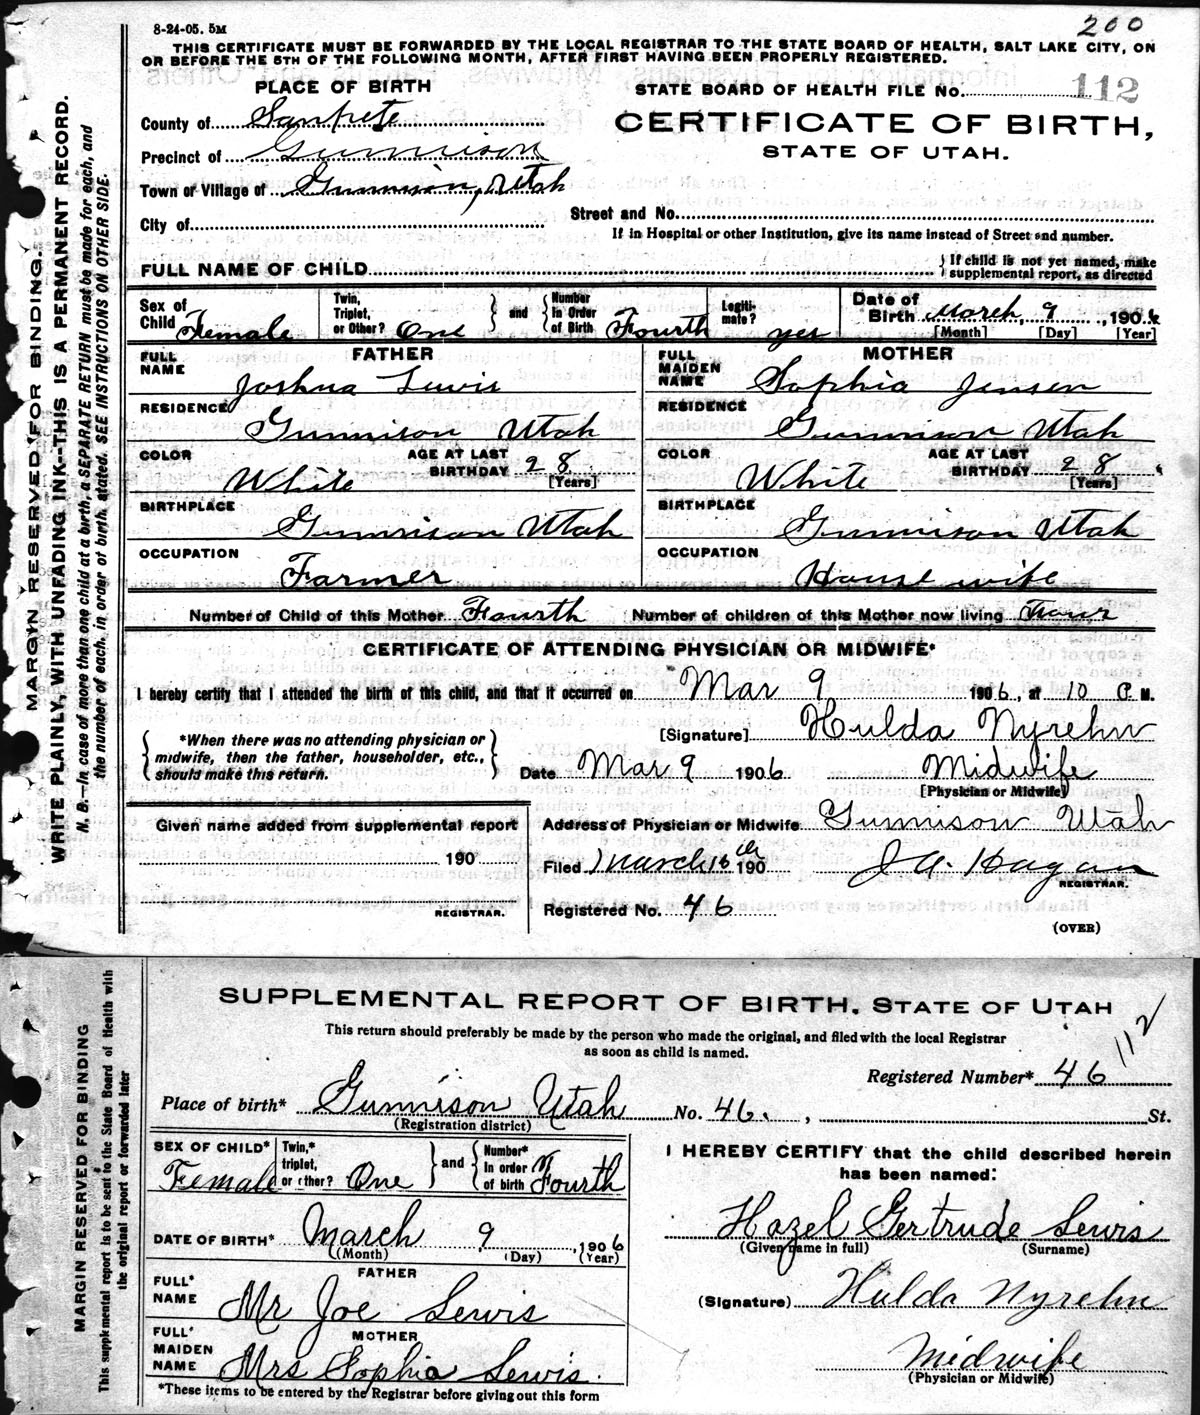 8-24-05. 5M
200
THIS CERTIFICATE MUST BE FORWARDED BY THE LOCAL REGISTRAR TO THE STATE BOARD OF HEALTH, SALT LAKE CITY, ON
OR BEFORE THE 5TH OF THE FOLLOWING MONTH, AFTER FIRST HAVING BEEN PROPERLY REGISTERED.
PLACE OF BIRTH
STATE BOARD OF HEALTH FILE No. 112
County of Sanpete
CERTIFICATE OF BIRTH,
Precinct of Gunnison
STATE OF UTAH.
Town or Village of Gunnison, Utah
Street and No.
City of
If in Hospital or other Institution, give its name instead of Street and number.
FULL NAME OF CHILD
If child is not yet named, make
supplemental report, as directed
Sex of
Child Female
Twin,
Triplet,
or Other? One
and
Number
In Order
of Birth Fourth
Legiti-
mate? yes
Date of
Birth March, 9, 1906
[Month] [Day] [Year]
FATHER
FULL
NAME Joshua Lewis
RESIDENCE Gunnison Utah
COLOR White
AGE AT LAST
BIRTHDAY 28
[Years]
BIRTHPLACE Gunnison Utah
OCCUPATION Farmer
MOTHER
FULL
MAIDEN
NAME Sophia Jensen
RESIDENCE Gunnison Utah
COLOR White
AGE AT LAST
BIRTHDAY 28
[Years]
BIRTHPLACE Gunnison Utah
OCCUPATION House wife
Number of Child of this Mother Fourth Number of children of this Mother now living Four
CERTIFICATE OF ATTENDING PHYSICIAN OR MIDWIFE*
I hereby certify that I attended the birth of this child, and that it occurred on Mar 9 1906, at 10 P. M.
[Signature] Hulda Nyrehn
*When there was no attending physician or
midwife, then the father, householder, etc.,
should make this return.
Date Mar 9 1906 Midwife
[Physician or Midwife]
Given name added from supplemental report
190
REGISTRAR.
Address of Physician or Midwife Gunnison Utah
Filed March 16th 190 J A. Hagan
REGISTRAR.
Registered No. 46
(OVER)
MARGIN RESERVED FOR BINDING.
WRITE PLAINLY, WITH UNFADING INK--THIS IS A PERMANENT RECORD.
N. B.--In case of more than one child at a birth, a SEPARATE RETURN must be made for each, and
the number of each, in order of birth, stated. SEE INSTRUCTIONS ON OTHER SIDE.
SUPPLEMENTAL REPORT OF BIRTH, STATE OF UTAH
This return should preferably be made by the person who made the original, and filed with the local Registrar
as soon as child is named.
112
Registered Number* 46
Place of birth* Gunnison Utah No. 46. , St.
(Registration district)
SEX OF CHILD*
Female
Twin,*
triplet,
or other? One
and
Number*
in order
of birth Fourth
DATE OF BIRTH* March 9, 1906
(Month) (Day) (Year)
FATHER
FULL*
NAME Mr Joe Lewis
MOTHER
FULL*
MAIDEN
NAME Mrs Sophia Lewis.
*These items to be entered by the Registrar before giving out this form
I HEREBY CERTIFY that the child described herein
has been named:
Hazel Gertrude Lewis
(Given name in full) (Surname)
(Signature) Hulda Nyrehn
Midwife
(Physician or Midwife)
MARGIN RESERVED FOR BINDING
This supplemental report is to be sent to the State Board of Health with
the original report or forwarded later